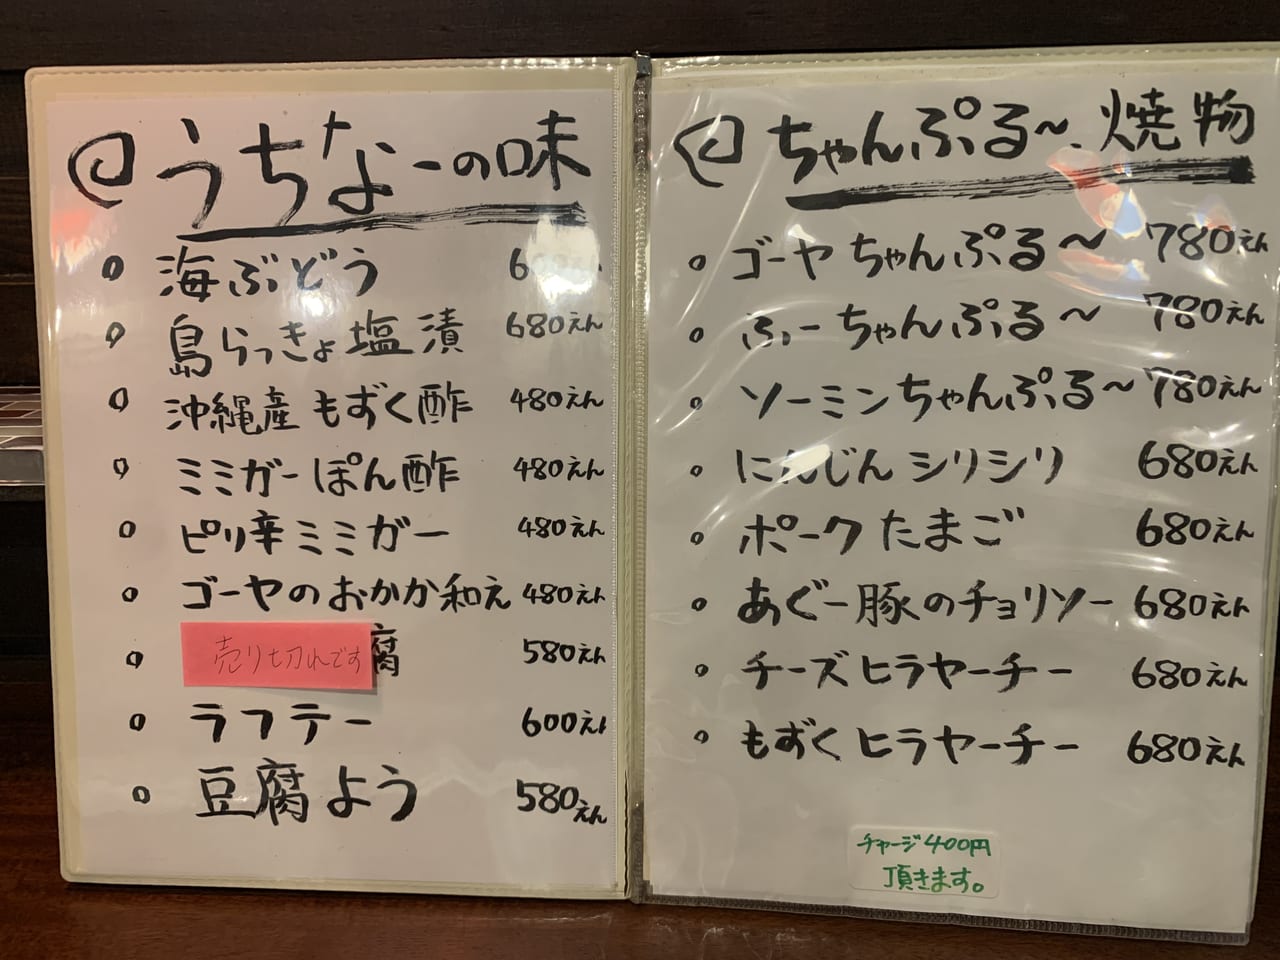 うちなーの味
海ぶどう
島らっきょ塩漬 680えん
沖縄産もずく酢 480えん
ミミガーぽん酢 480えん
ピリ辛ミミガー 480えん
ゴーヤのおかか和え 480えん
売り切れです 腐 580えん
ラフテー 600えん
豆腐よう 580えん
ちゃんぷる〜、焼物
ゴーヤちゃんぷる〜 780えん
ふーちゃんぷる〜 780えん
ソーミンちゃんぷる〜 780えん
にんじんシリシリ 680えん
ポークたまご 680えん
あぐー豚のチョリソー 680えん
チーズヒラヤーチー 680えん
もずくヒラヤーチー 680えん
チャージ400円
頂きます。